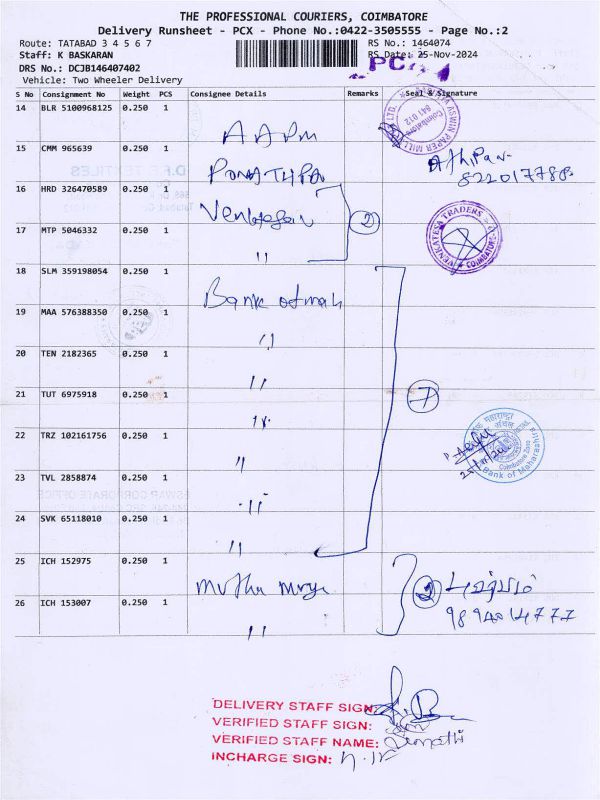 THE PROFESSIONAL COURIERS, COIMBATORE
Delivery Runsheet - PCX - Phone No.:0422-3505555 - Page No.:2
Route: TATABAD 3 4 5 6 7
RS No.: 1464074
Staff: K BASKARAN
RS Date: 25-Nov-2024
DRS No.: DCJB146407402
Vehicle: Two Wheeler Delivery
S No Consignment No Weight PCS Consignee Details Remarks Seal & Signature
14 BLR 5100968125 0.250 1 AAPM
15 CMM 965639 0.250 1
16 HRD 326470589 0.250 1 2
17 MTP 5046332 0.250 1 "
VENKATESA TRADERS
COIMBATORE
18 SLM 359198054 0.250 1 Bank of mah
19 MAA 576388350 0.250 1 "
20 TEN 2182365 0.250 1 "
21 TUT 6975918 0.250 1 "
22 TRZ 102161756 0.250 1 " 7
Bank of Maharashtra
Coimbatore Zone
23 TVL 2858874 0.250 1 "
24 SVK 65118010 0.250 1 "
25 ICH 152975 0.250 1 2
26 ICH 153007 0.250 1 "
DELIVERY STAFF SIGN:
VERIFIED STAFF SIGN:
VERIFIED STAFF NAME:
INCHARGE SIGN: